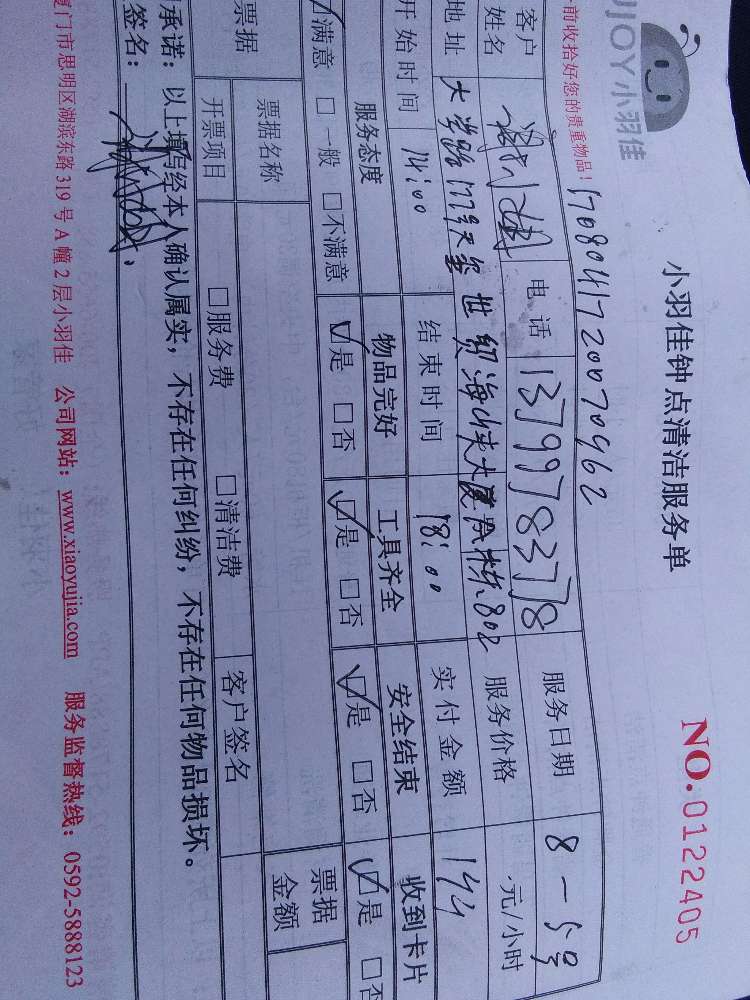 UJOY小羽佳
小羽佳钟点清洁服务单
NO.0122405
前收拾好您的贵重物品!
1708041720070962
客户姓名
电话 13799783778
服务日期 8-5号
地址 大学路177号 世贸海峡大厦 栋.802
服务价格 元/小时
开始时间 14:00 结束时间 18:00 实付金额 144
服务态度 物品完好 工具齐全 安全结束 收到卡片
☑满意 □一般 □不满意 ☑是 □否 ☑是 □否 ☑是 □否 ☑是 □否
票据 票据名称 票据金额
开票项目 □服务费 □清洁费 客户签名
承诺:以上填写经本人确认属实,不存在任何纠纷,不存在任何物品损坏。
签名:
厦门市思明区湖滨东路319号A幢2层小羽佳 公司网站:www.xiaoyujia.com 服务监督热线:0592-5888123